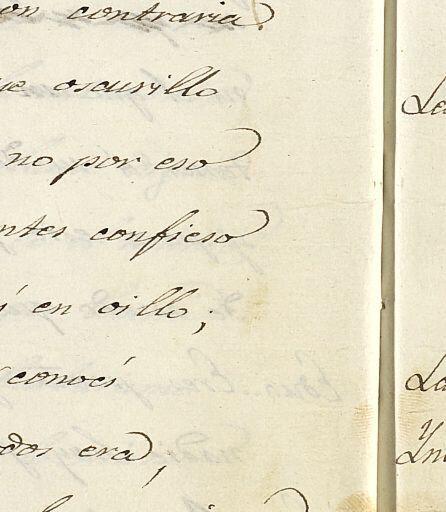 on contraria.
ue oscurillo
no por eso
ntes confieso
i en oillo;
conocí
dos era,
La
La
Yn